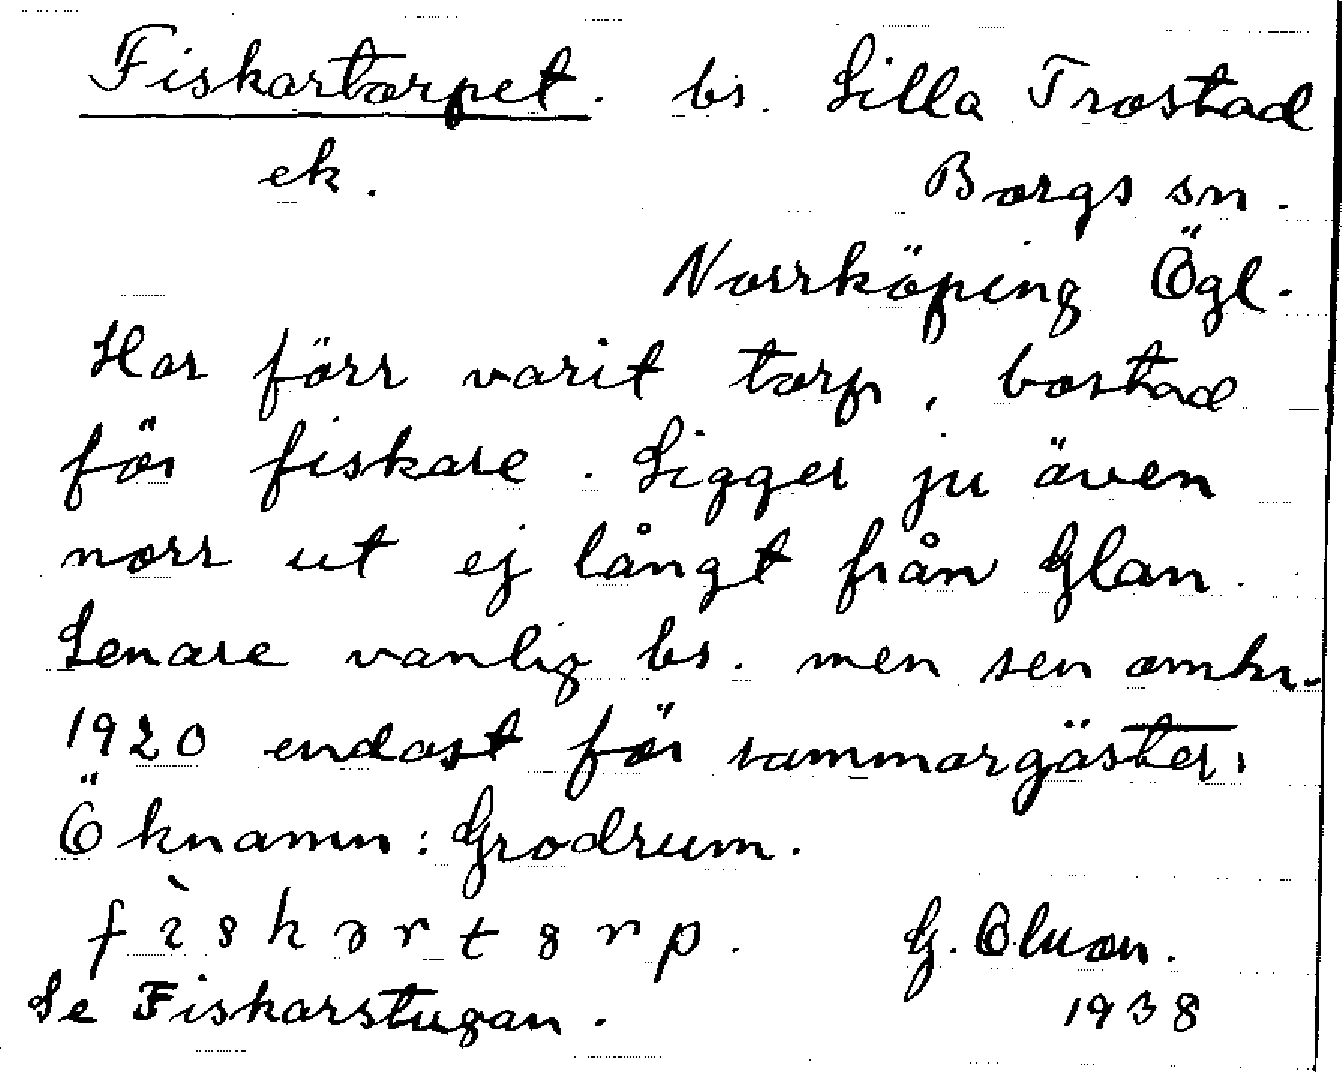 Fiskartorpet. bs. Lilla Trostad
ek. Borgs sn.
Norrköping Ögl.
Har förr varit torp, bostad
för fiskare. Ligger ju även
norr ut ej långt från Glan.
Senare vanlig bs. men sen omkr.
1920 endast för sommargäster.
Öknamn: Grodrum.
fìskərtɞrp. G. Olsson.
Se Fiskarstugan. 1938